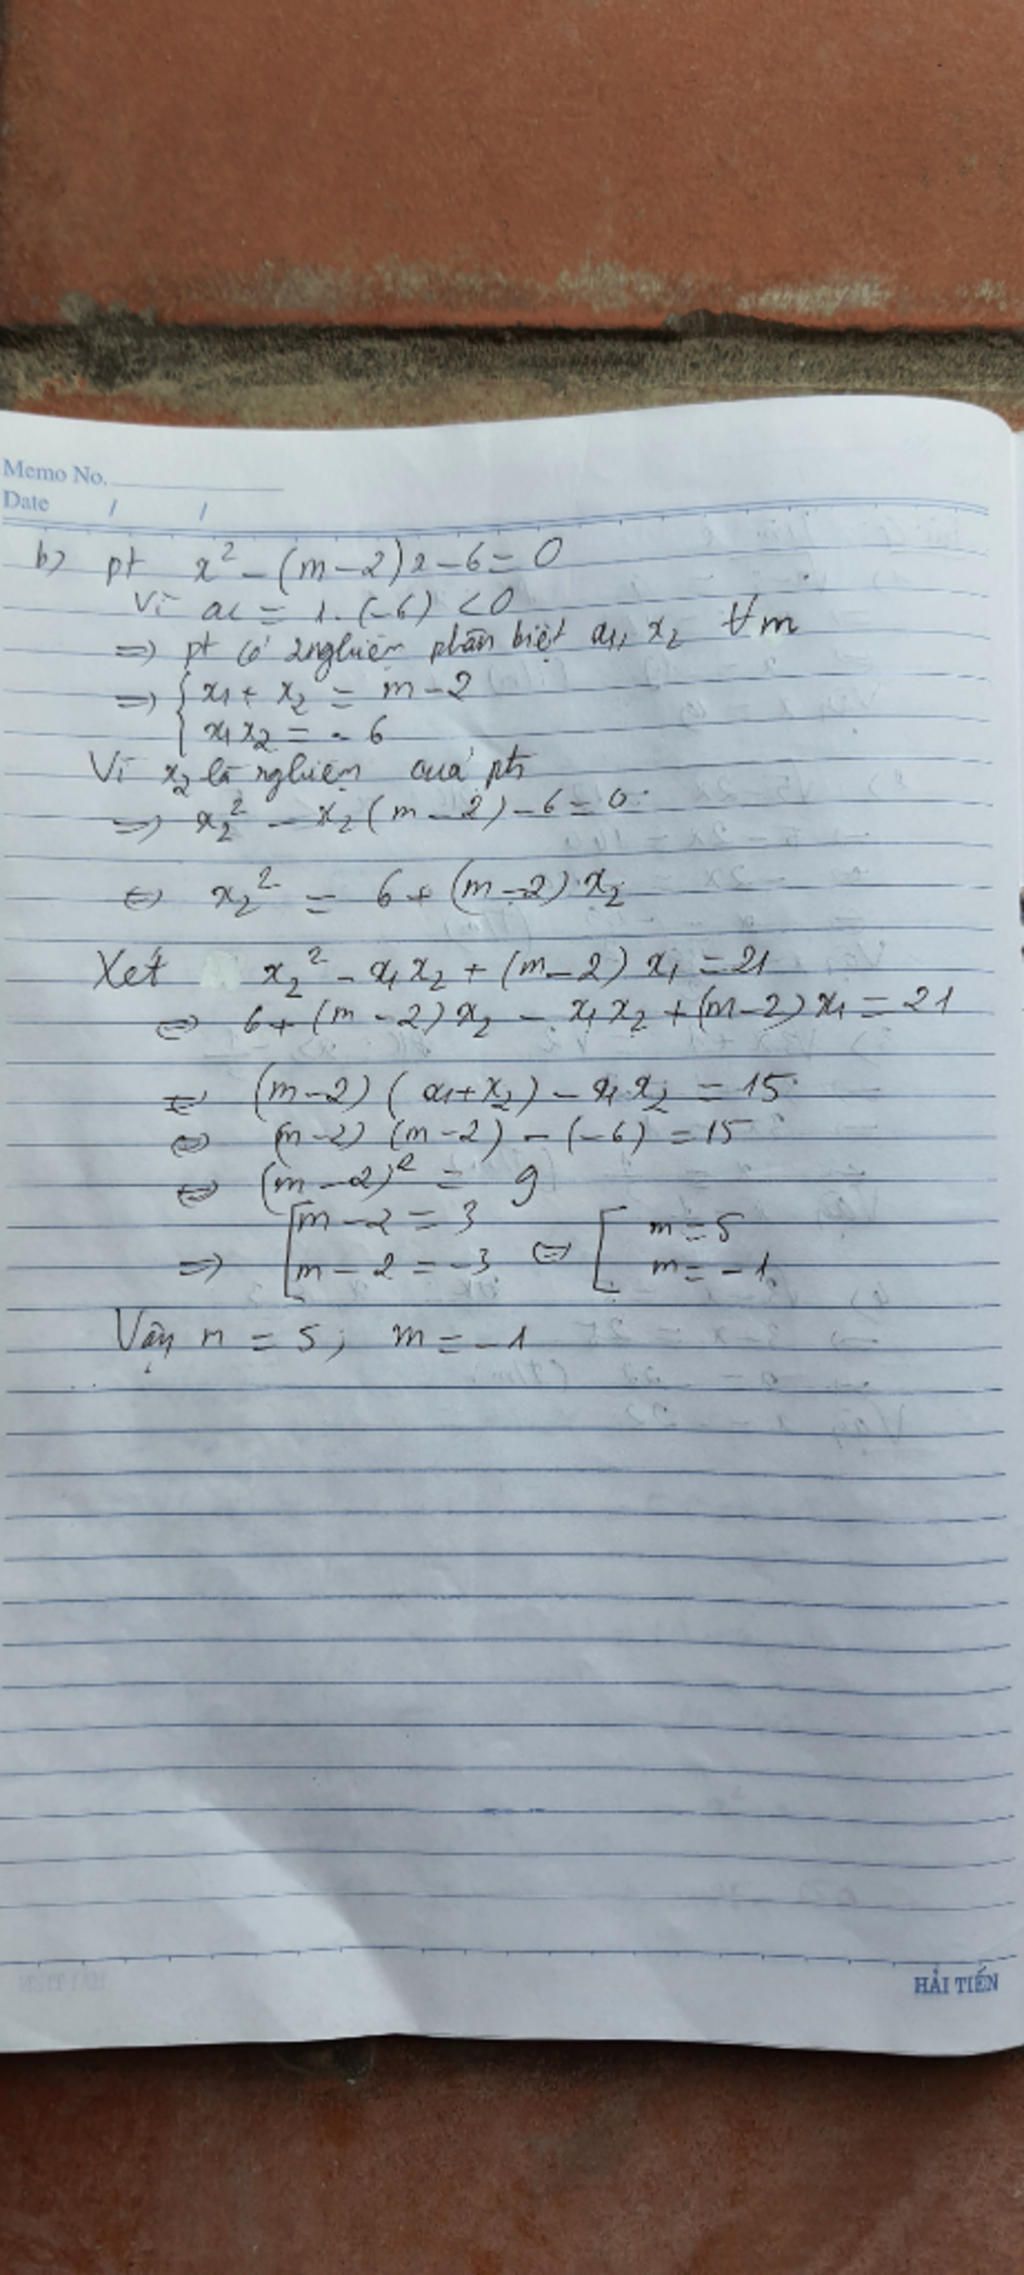 Memo No.
Date / /
b) pt x² - (m-2)x - 6 = 0
Vì ac = 1.(-6) < 0
=> pt có 2 nghiệm phân biệt x₁, x₂ ∀m
=> { x₁ + x₂ = m - 2
x₁x₂ = -6
Vì x₂ là nghiệm của pt
=> x₂² - x₂(m-2) - 6 = 0
<=> x₂² = 6 + (m-2).x₂
Xét x₂² - x₁x₂ + (m-2)x₁ = 21
<=> 6 + (m-2)x₂ - x₁x₂ + (m-2)x₁ = 21
<=> (m-2)(x₁+x₂) - x₁.x₂ = 15
<=> (m-2)(m-2) - (-6) = 15
<=> (m-2)² = 9
=> [ m-2 = 3 <=> [ m = 5
m-2 = -3 m = -1
Vậy m = 5; m = -1
HẢI TIẾN